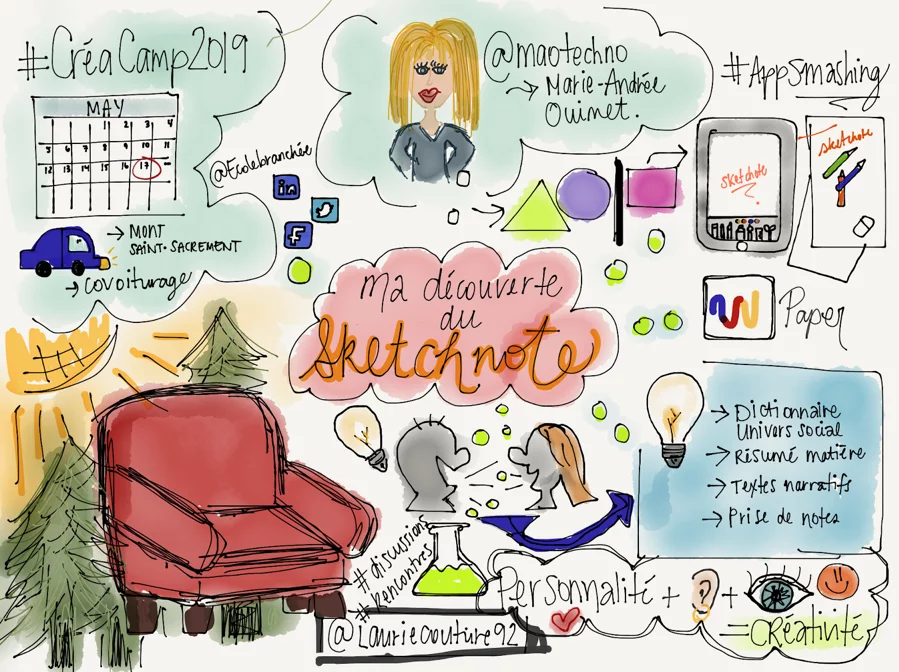 #CréaCamp2019
MAY
1 2 3 4
5 6 7 8 9 10 11
12 13 14 15 16 17
→ MONT
SAINT-SACREMENT
→ covoiturage
@Ecolebranchée
in
f
@maotechno
→ Marie-Andrée
Ouimet.
#AppSmashing
sketchnote
sketchnote
Paper
ma découverte
du
Sketchnote
→ Dictionnaire
Univers social
→ Résumé matière
→ Textes narratifs
→ Prise de notes
#discussions
#Rencontres
@Lauriecouture92
Personnalité + +
= Créativité